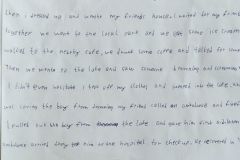 then I dressed up and wents my friends house. I waited for my friend
together we went to one local park and we ate some ice cream
walked to the nearby cafe, we drunk some coffee and talked for some
Then we wents to the lake and saw someone drowning and screaming
I didn't even hesitate I tore off my clothes and jumped into the lake, whi
was saving the boy from drowning my friend called an ambulance and fire
I pulled out the boy from the lake and gave him first aid when
ambulance arrived they him or the hospital for checkup. He recovered in